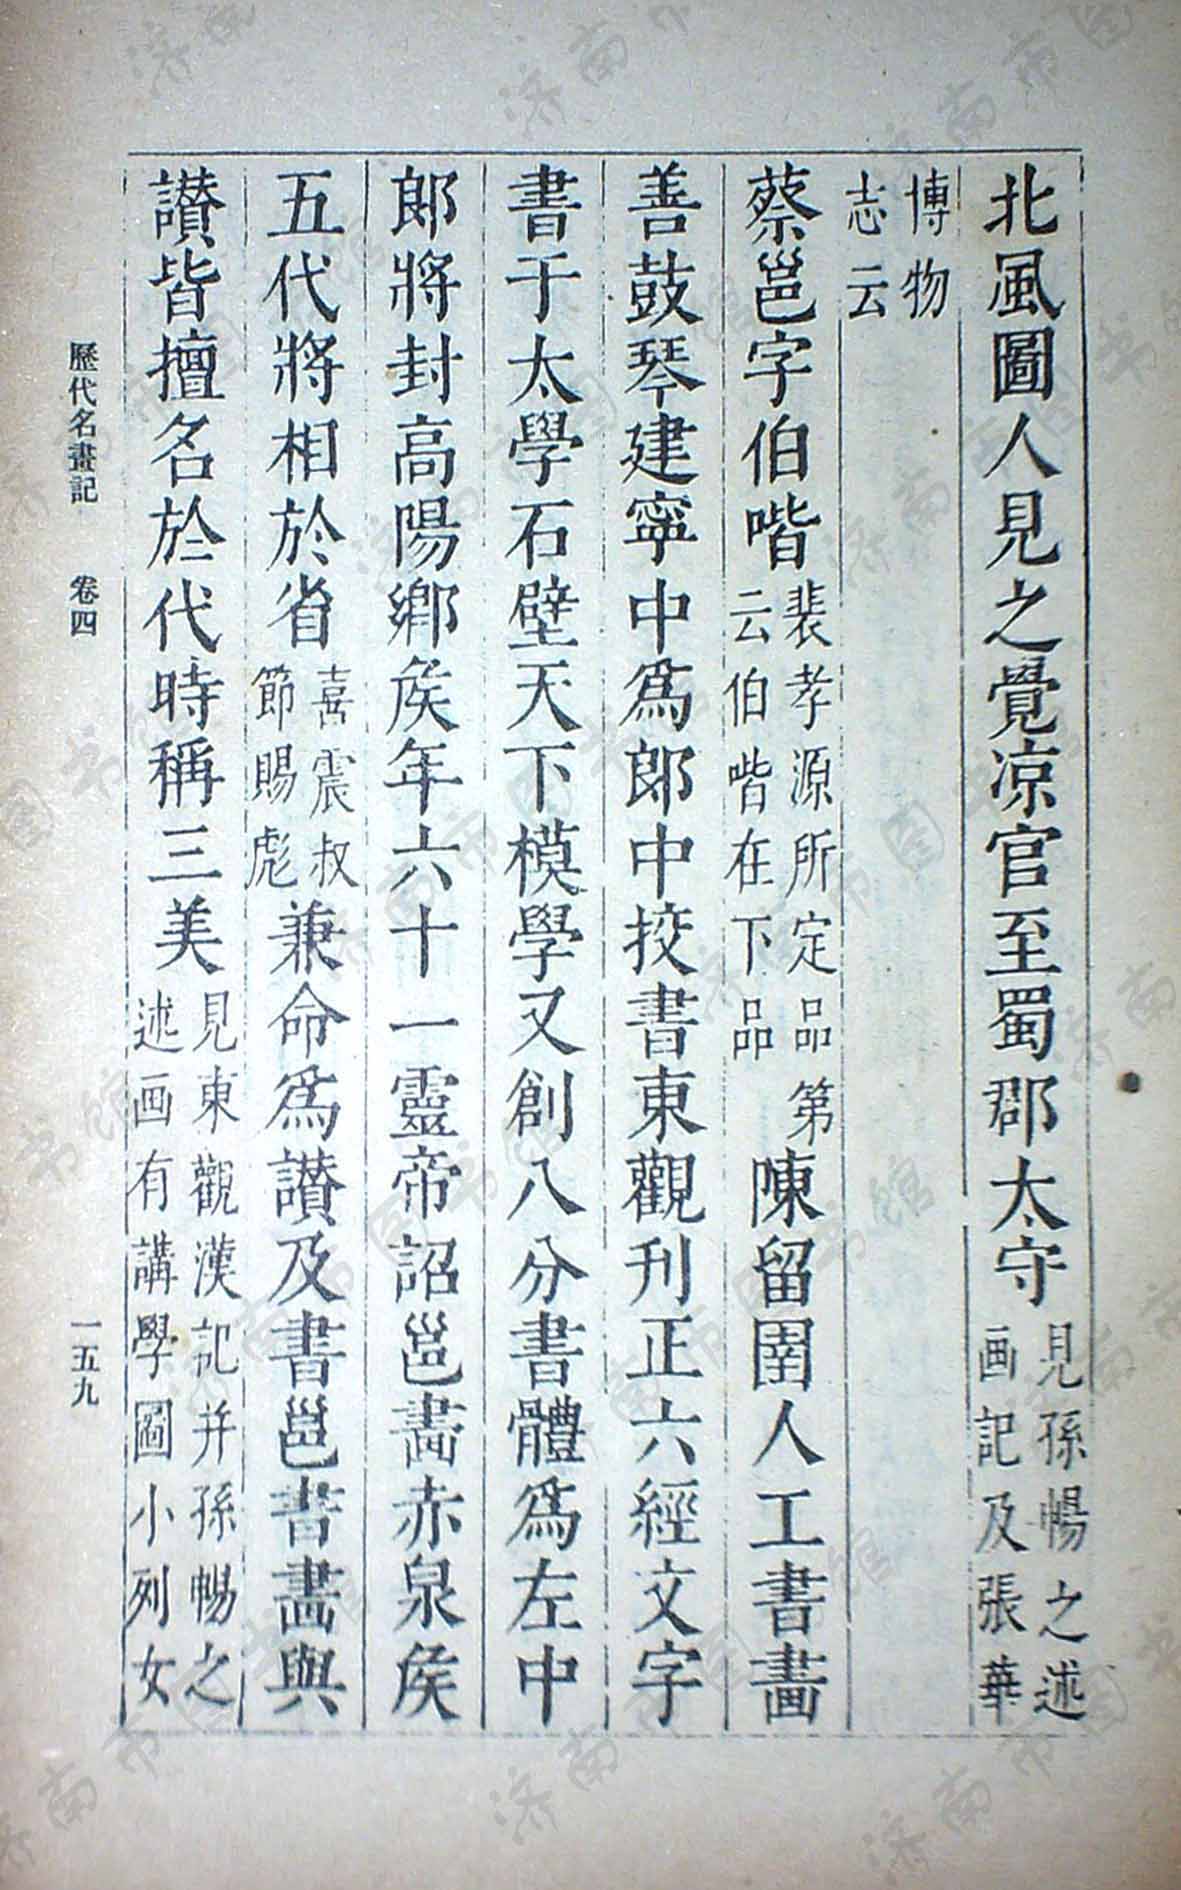 北風圖人見之覺凉官至蜀郡太守見孫暢之述画記及張華
博物志云
蔡邕字伯喈裴孝源所定品第云伯喈在下品陳留圉人工書畫
善鼓琴建寧中爲郎中挍書東觀刊正六經文字
書于太學石壁天下模學又創八分書體爲左中
郎將封高陽鄉侯年六十一靈帝詔邕畵赤泉侯
五代將相於省喜震叔節賜彪兼命爲讃及書邕書畵與
讃皆擅名於代時稱三美見東觀漢記并孫暢之述画有講學圖小列女
歷代名畫記　卷四　一五九